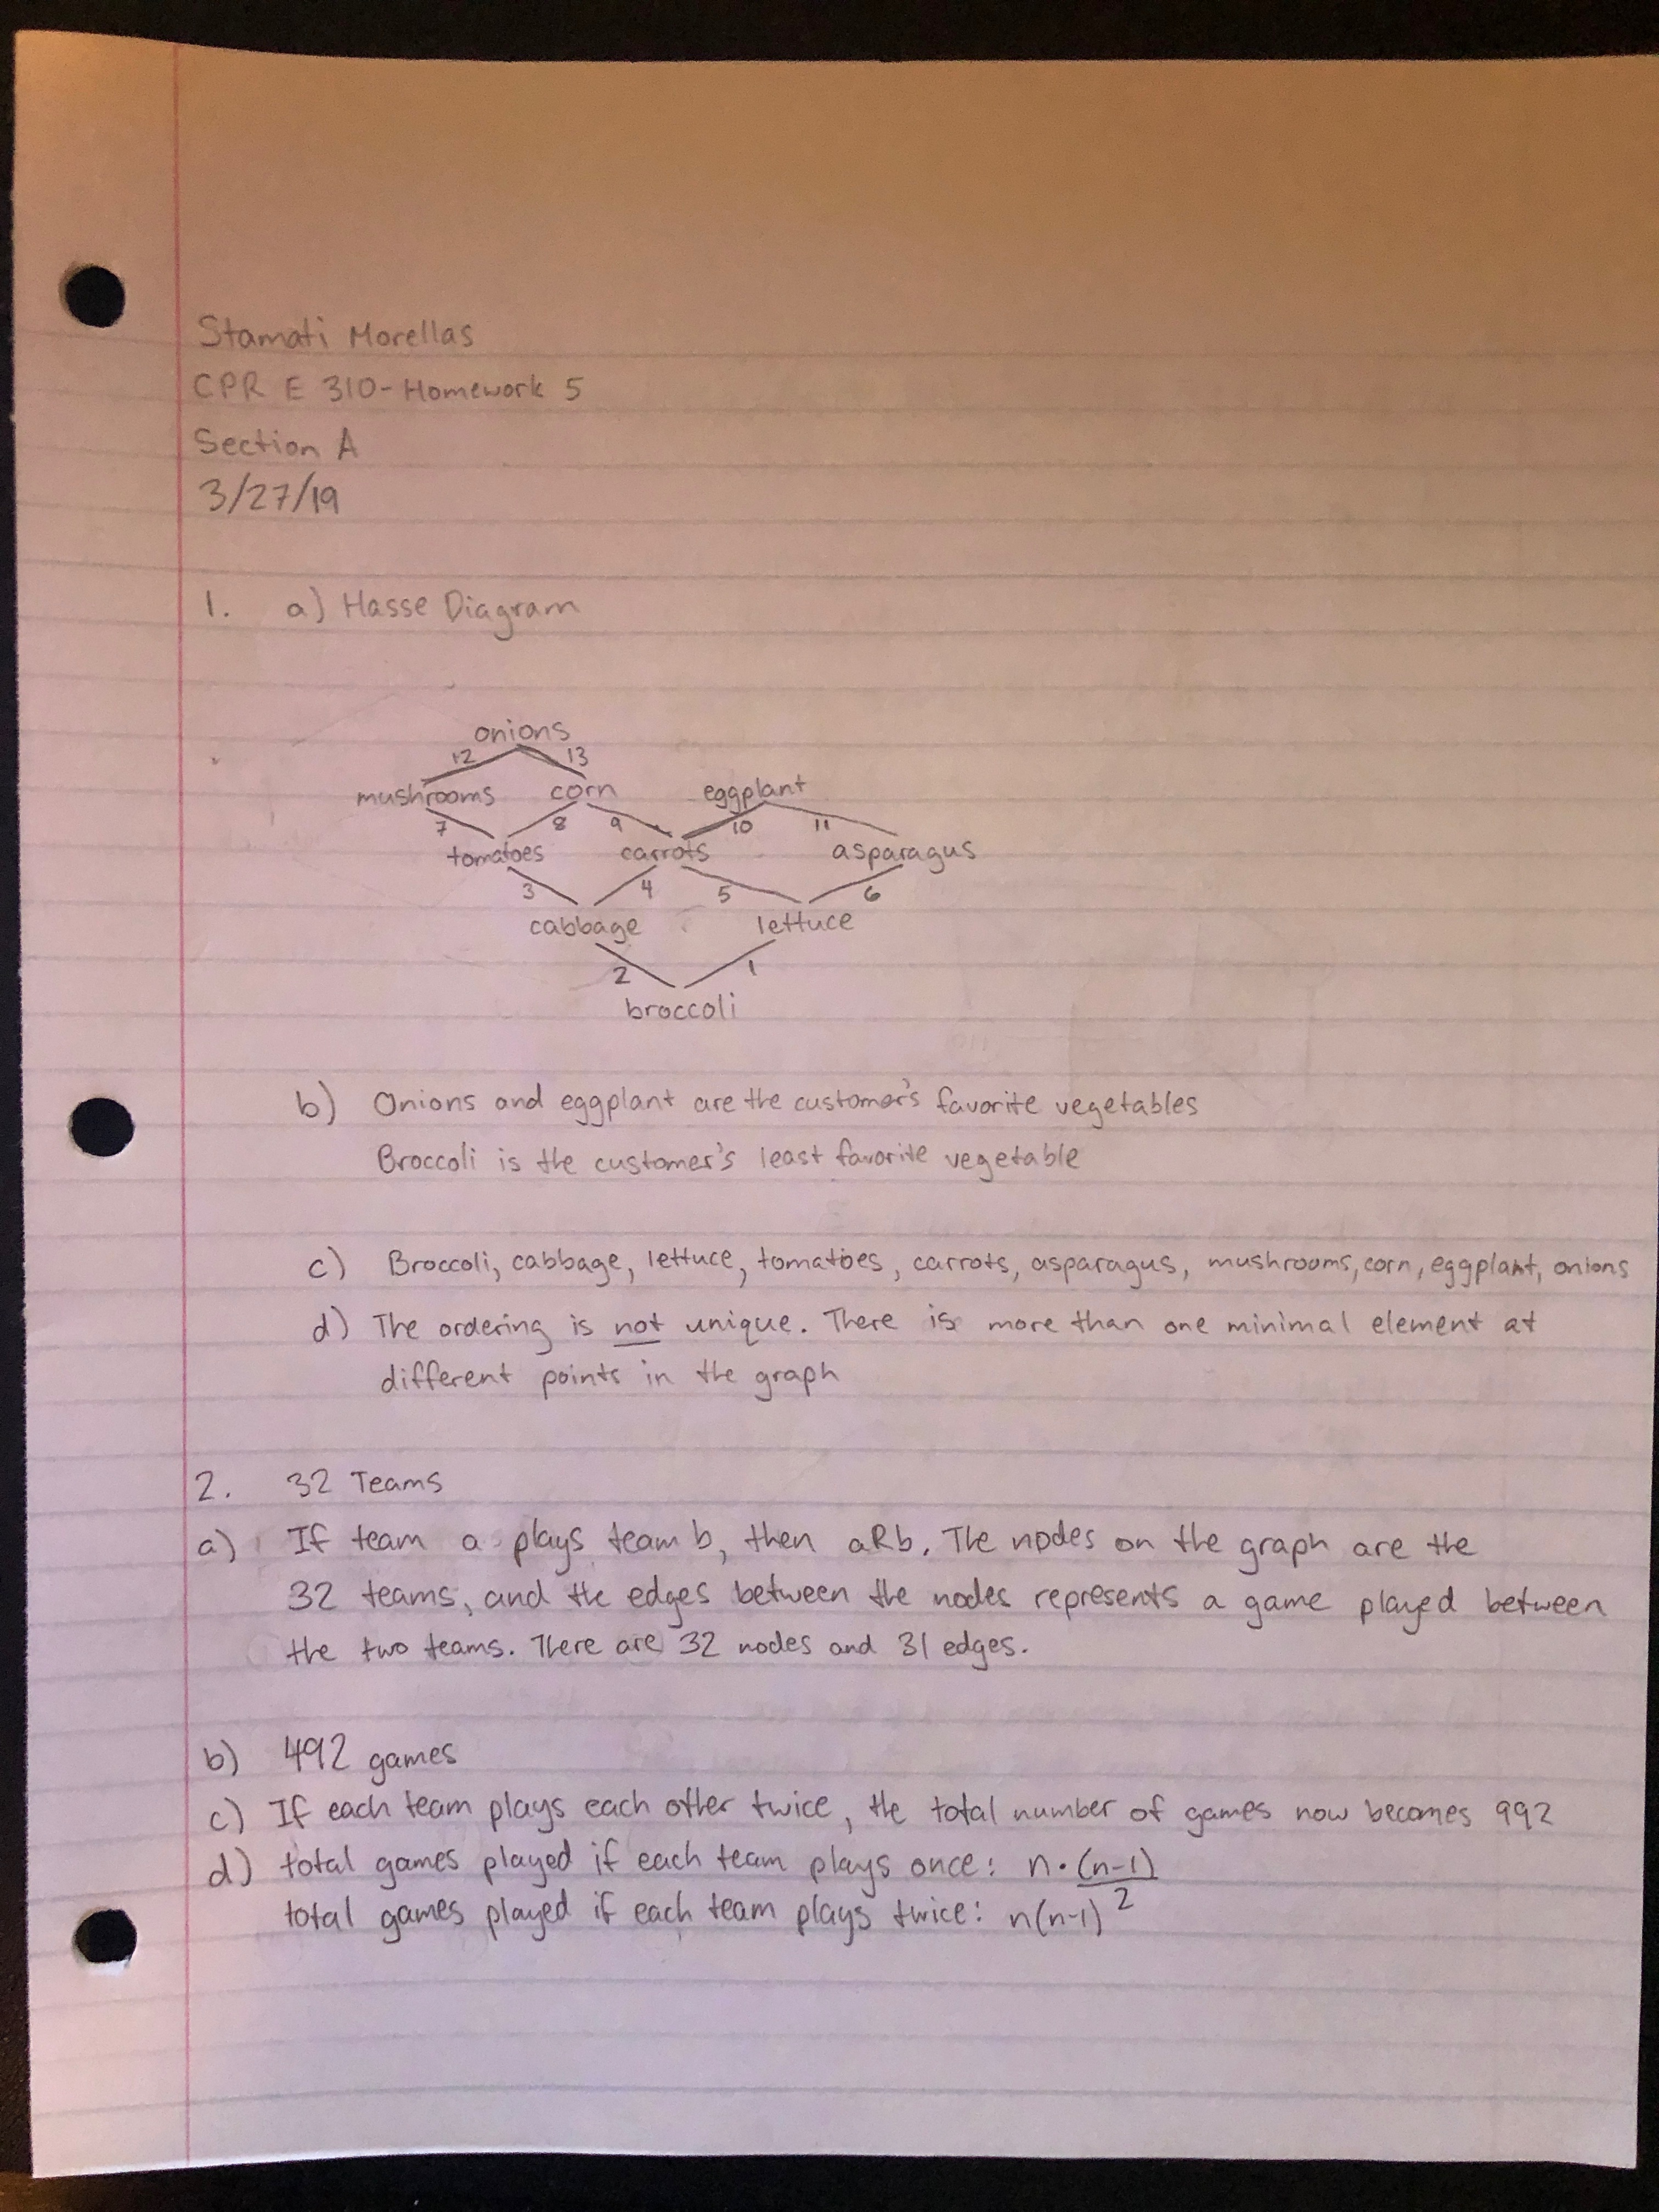 Stamati Morellas
CPR E 310-Homework 5
Section A
3/27/19
1. a) Hasse Diagram
onions
12 13
mushrooms corn eggplant
7 8 9 10 11
tomatoes carrots asparagus
3 4 5 6
cabbage lettuce
2 1
broccoli
b) Onions and eggplant are the customer's favorite vegetables
Broccoli is the customer's least favorite vegetable
c) Broccoli, cabbage, lettuce, tomatoes, carrots, asparagus, mushrooms, corn, eggplant, onions
d) The ordering is not unique. There is more than one minimal element at
different points in the graph
2. 32 Teams
a) If team a plays team b, then aRb. The nodes on the graph are the
32 teams, and the edges between the nodes represents a game played between
the two teams. There are 32 nodes and 31 edges.
b) 492 games
c) If each team plays each other twice, the total number of games now becomes 992
d) total games played if each team plays once: n·(n-1)/2
total games played if each team plays twice: n(n-1)